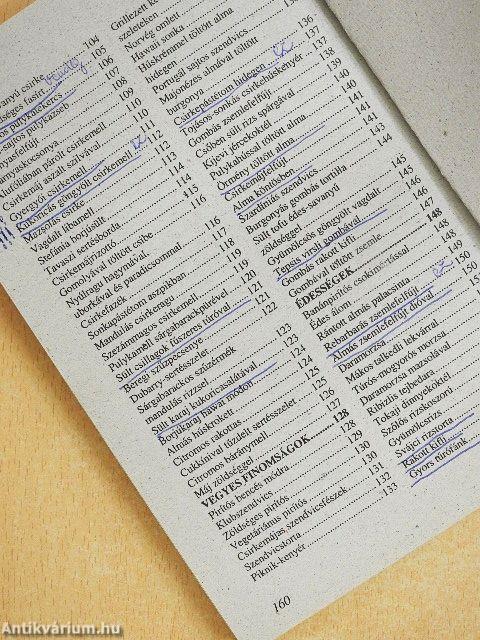 104
105
106
107
108
109
110
Klufóliában párolt csirkemell 111
Csirkemáj aszalt szilvával 111
Gyergyói csirkemell 112
Kukoricás göngyölt csirkemell 112
Mazsolás csirke 113
Vagdalt libamell 114
Stefánia borjúsült 114
Tavaszi sertésborda 115
Csirkemájrizottó 116
Gomolyával töltött csibe
Nyúlragu hagymával,
uborkával és paradicsommal 116
Csirkefazék 117
Sonkapástétom aszpikban 118
Mandulás csirkeragu 119
Szezámmagos csirkemell 119
Pulykamell sárgabarackpürével 120
Sült csillagok fűszeres túróval 121
Beregi szűzpecsenye 121
Dubarry-sertésszelet 122
Sárgabarackos szűzérmék
mandulás rizzsel 123
Sült karaj kukoricasalátával 123
Borjúkaraj hawai módon 124
Almás húskrokett 124
Citromos rakottas 125
Cukkínival tűzdelt sertésszelet 125
Citromos báránymell 126
Máj zöldséggel 127
VEGYES FINOMSÁGOK 128
Pirítós bencés módra 128
Klubszendvics 129
Zöldséges pirítós 130
Vegetáriánus pirítós 130
Csirkemájas szendvicsfészek 131
Szendvicstorta 132
Piknik-kenyér 133
szeleteken
Norvég omlett
Hawaii sonka
Húskrémmel töltött alma
hidegen 136
Portugál sajtos szendvics 137
Majonézes almával töltött
burgonya 137
Csirkepástétom hidegen 138
Tojásos-sonkás csirkehúskenyér 138
Gombás zsemlefelfújt 139
Csőben sült rizs spárgával 140
Kijevi jércekoktél 140
Pulykahússal töltött alma 141
Örmény töltött alma 141
Csirkemájfelfújt 143
Alma köntösben 144
Szardíniás szendvics
Burgonyás gombás tortilla
Sült tofu édes-savanyú
zöldséggel 145
Gyümölcsös göngyölt vagdalt 145
Tepsis virsli gombával 146
Gombás rakott kifli 146
Gombával töltött zsemle 147
ÉDESSÉGEK 148
Banánpirítós csokimártással 148
Édes álom 149
Rántott almás palacsinta 149
Rebarbarás zsemlefelfújt 150
Almás zsemlefelfújt dióval 150
Daramorzsa
Mákos talkedli lekvárral
Túrós-mogyorós morzsa
Daramorzsa mazsolával
Ribizlis tejbedara
Tokaji fánnyekoktél
Szőlős rizskoszorú
Gyümölcsrizs
Svájci rizstorta
Rakott kifli
Gyors túrófánk
160
Antikvárium.hu